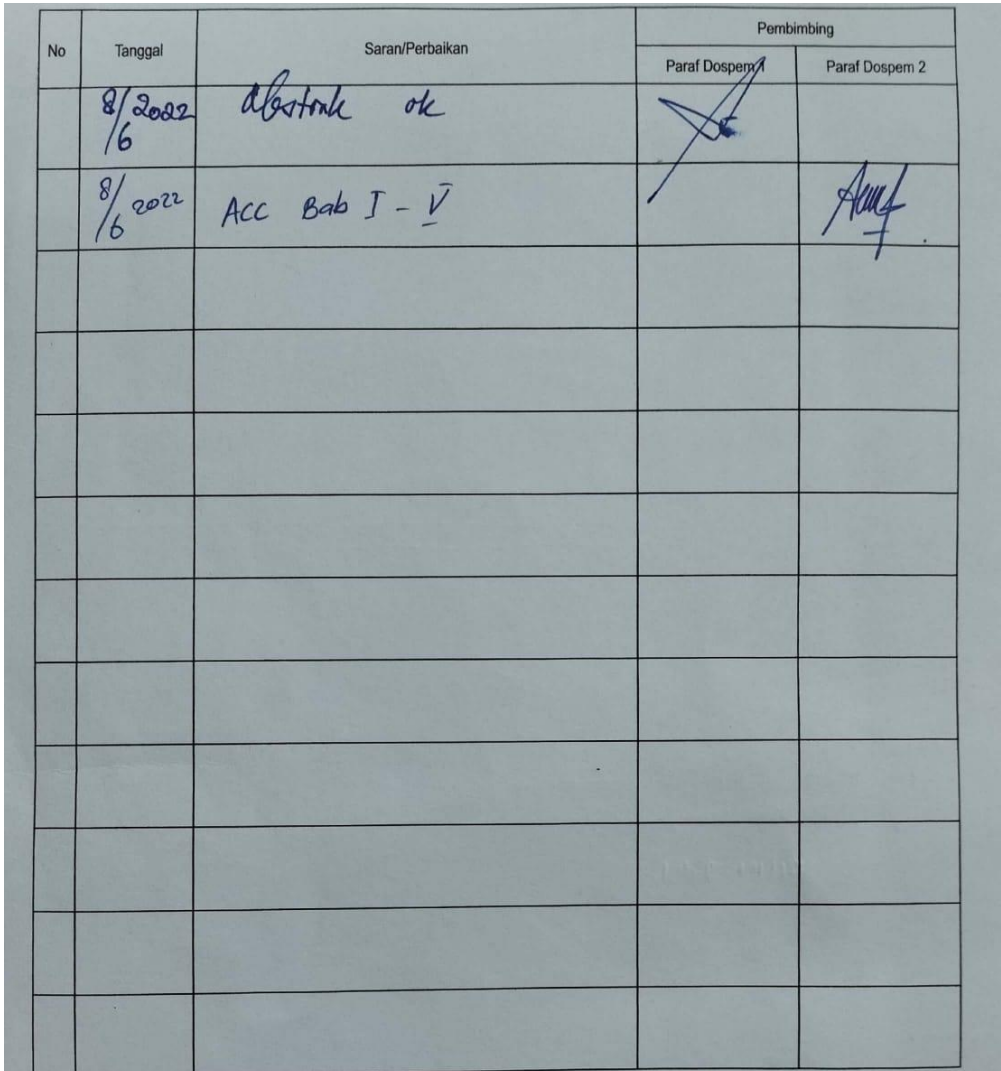 No Tanggal Saran/Perbaikan Pembimbing
Paraf Dospem 1 Paraf Dospem 2
8/6 2022 Abstrak ok
8/6 2022 ACC Bab I - V